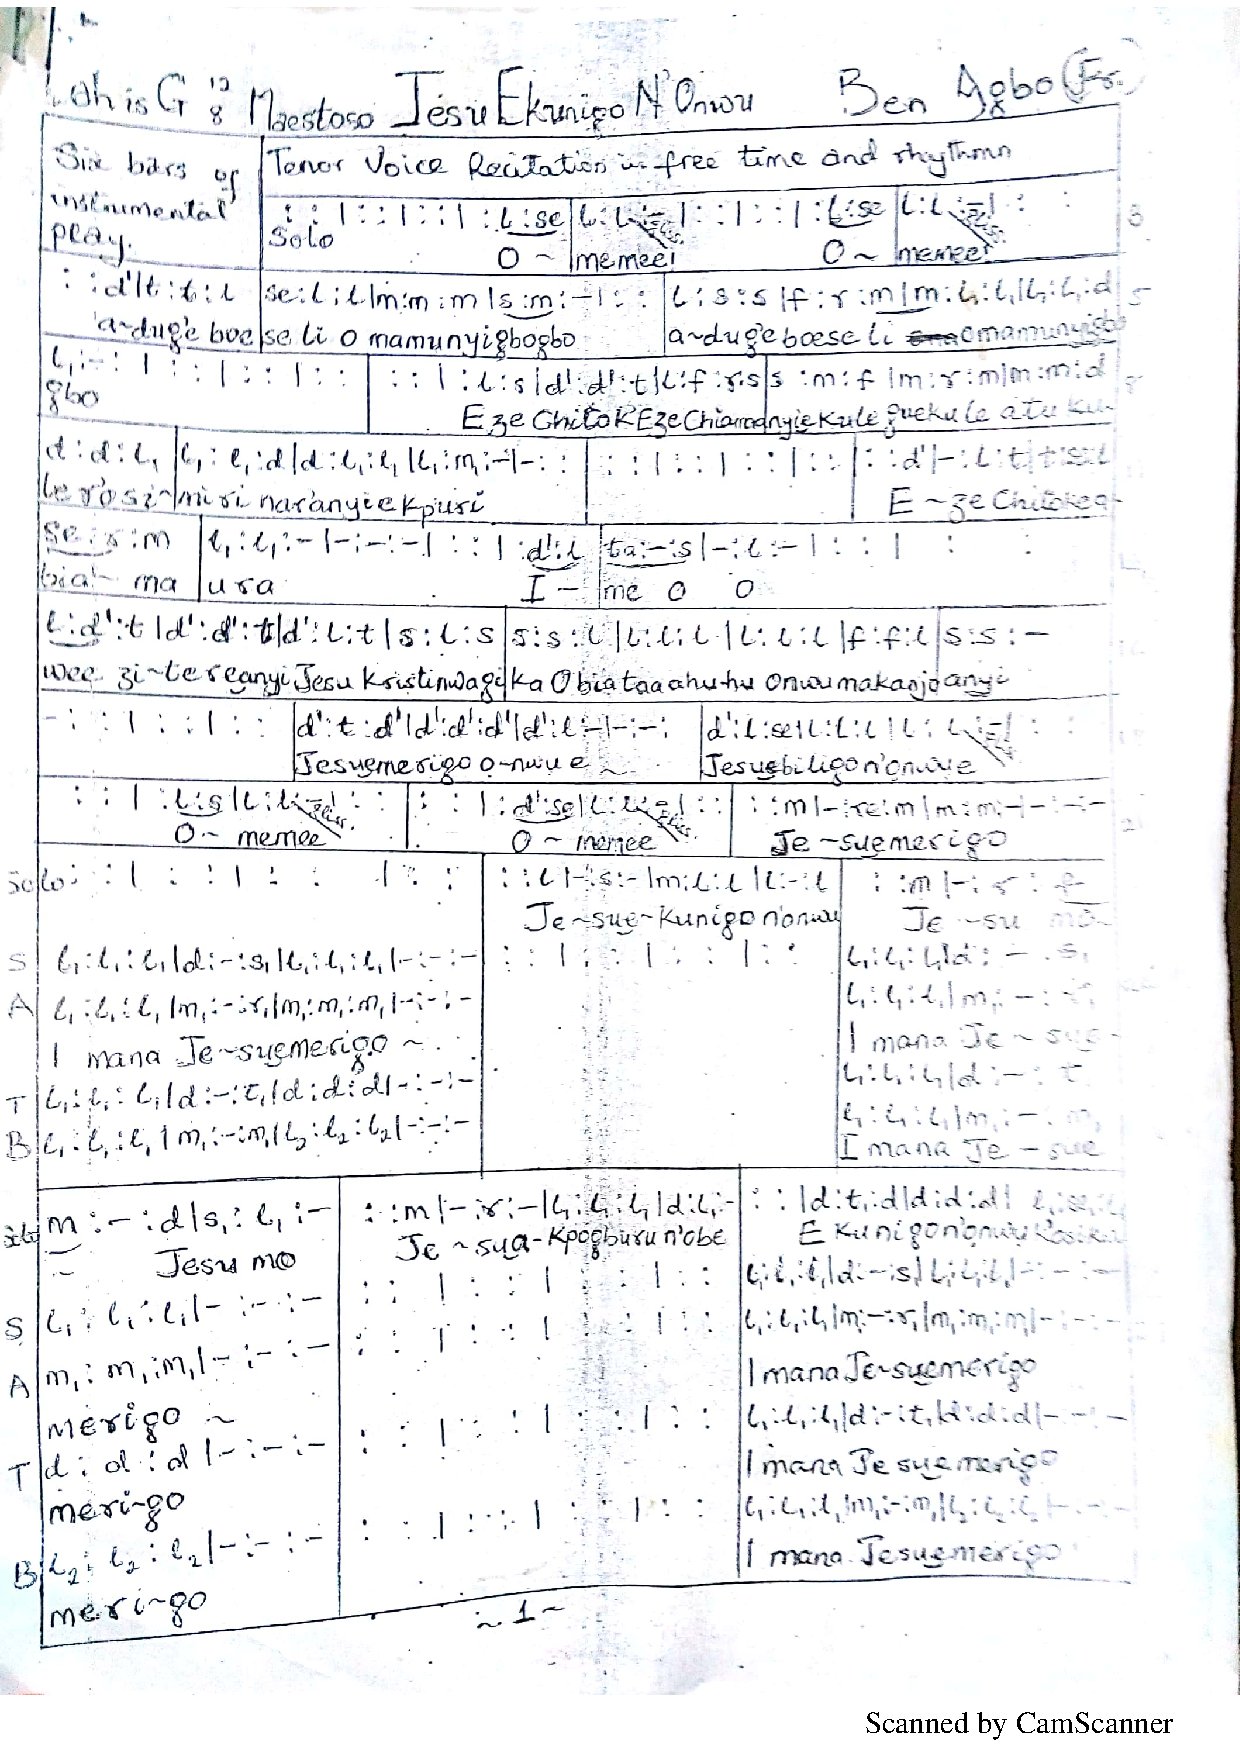 Lah is G 12/8 Maestoso Jesu Ekunigo N'Onwu Ben Agbo (Fr.)
Six bars of instrumental play.
Tenor Voice Recitation in free time and rhythmn
: : | : : | : : | : l : se | l : l : - | : : | : : | : l : se | l : l : - | : :
Solo O ~ memee! O ~ memee!
: : d' | t : t : l | se : l : l | m : m : m | s : m : - | : : l : s : s | f : r : m | m : l₁ : l₁ | l₁ : l₁ : d
a~dug'e boe se li o mamunyigbogbo a~duge boese li omamunyigbo
l₁ : - : | : : | : : | : : : : | : l : s | d' : d' : t | l : f : r : s | s : m : f | m : r : m | m : m : d
gbo Eze Chitok Eze Chiamanyie Kule guekule atu ku-
d : d : l₁ | l₁ : l₁ : d | d : l₁ : l₁ | l₁ : m₁ : - | - : : : : | : : | : : | : : : : d' | - : l : t | t : s : l
le ro si~ mi ri nar'anyie kpuri E ~ ze Chitokea
se : s : m | l₁ : l₁ : - | - : - : - | : : | : d' : l | ta : - : s | - : l : - | : : | : :
bia ~ ma ura I ~ me O O
l : d' : t | d' : d' : t | d' : l : t | s : l : s | s : s : l | l : l : l | l : l : l | f : f : l | s : s : -
wee zi~te reanyi Jesu Kristi nwa gi ka Obia taa ahu~hu onwu maka njo anyi
- : : | : : | : : d' : t : d' | d' : d' : d' | d' : l : - | - : - : d' : l : se | l : l : l | l : l : - | : :
Jesu emerigo o~nwu e ~ Jesu ebiligo n'onwu e
: : | : l : s | l : l : - | : : : : | : d' : se | l : l : - | : : : : m | - : re : m | m : m : - | - : - : -
O ~ memee O ~ memee Je ~su emerigo
Solo : : | : : | : : | : : : : l | - : s : - | m : l : l | l : - : l : : m | - : r : f
Je~sue~Kunigo n'onwu Je ~su mo
S l₁ : l₁ : l₁ | d : - : s₁ | l₁ : l₁ : l₁ | - : - : - : : | : : | : : | : : l₁ : l₁ : l₁ | d : - : s₁
A l₁ : l₁ : l₁ | m₁ : - : r₁ | m₁ : m₁ : m₁ | - : - : - l₁ : l₁ : l₁ | m₁ : - : r₁
I mana Je~suemerigo ~ I mana Je ~ sue~
T l₁ : l₁ : l₁ | d : - : t₁ | d : d : d | - : - : - l₁ : l₁ : l₁ | d : - : t
B l₁ : l₁ : l₁ | m₁ : - : m₁ | l₂ : l₂ : l₂ | - : - : - l₁ : l₁ : l₁ | m₁ : - : m₁
I mana Je ~ sue
m : - : d | s₁ : l₁ : - : : m | - : r : - | l₁ : l₁ : l₁ | d : l₁ : - : : | d : t₁ : d | d : d : d |
~ Jesu mo Je ~ sua~Kpogburu n'obe E Kunigo n'onwu
S l₁ : l₁ : l₁ | - : - : - : : | : : | : : | : : l₁ : l₁ : l₁ | d : - : s₁ | l₁ : l₁ : l₁ | - : - : -
A m₁ : m₁ : m₁ | - : - : - : : | : : | : : | : : l₁ : l₁ : l₁ | m₁ : - : r₁ | m₁ : m₁ : m₁ | - : - : -
merigo ~ I mana Je~suemerigo
T d : d : d | - : - : - : : | : : | : : | : : l₁ : l₁ : l₁ | d : - : t₁ | d : d : d | - : - : -
meri~go I mana Je suemerigo
B l₂ : l₂ : l₂ | - : - : - : : | : : | : : | : : l₁ : l₁ : l₁ | m₁ : - : m₁ | l₂ : l₂ : l₂ | - : - : -
meri~go I mana Jesuemerigo
~ 1 ~
Scanned by CamScanner